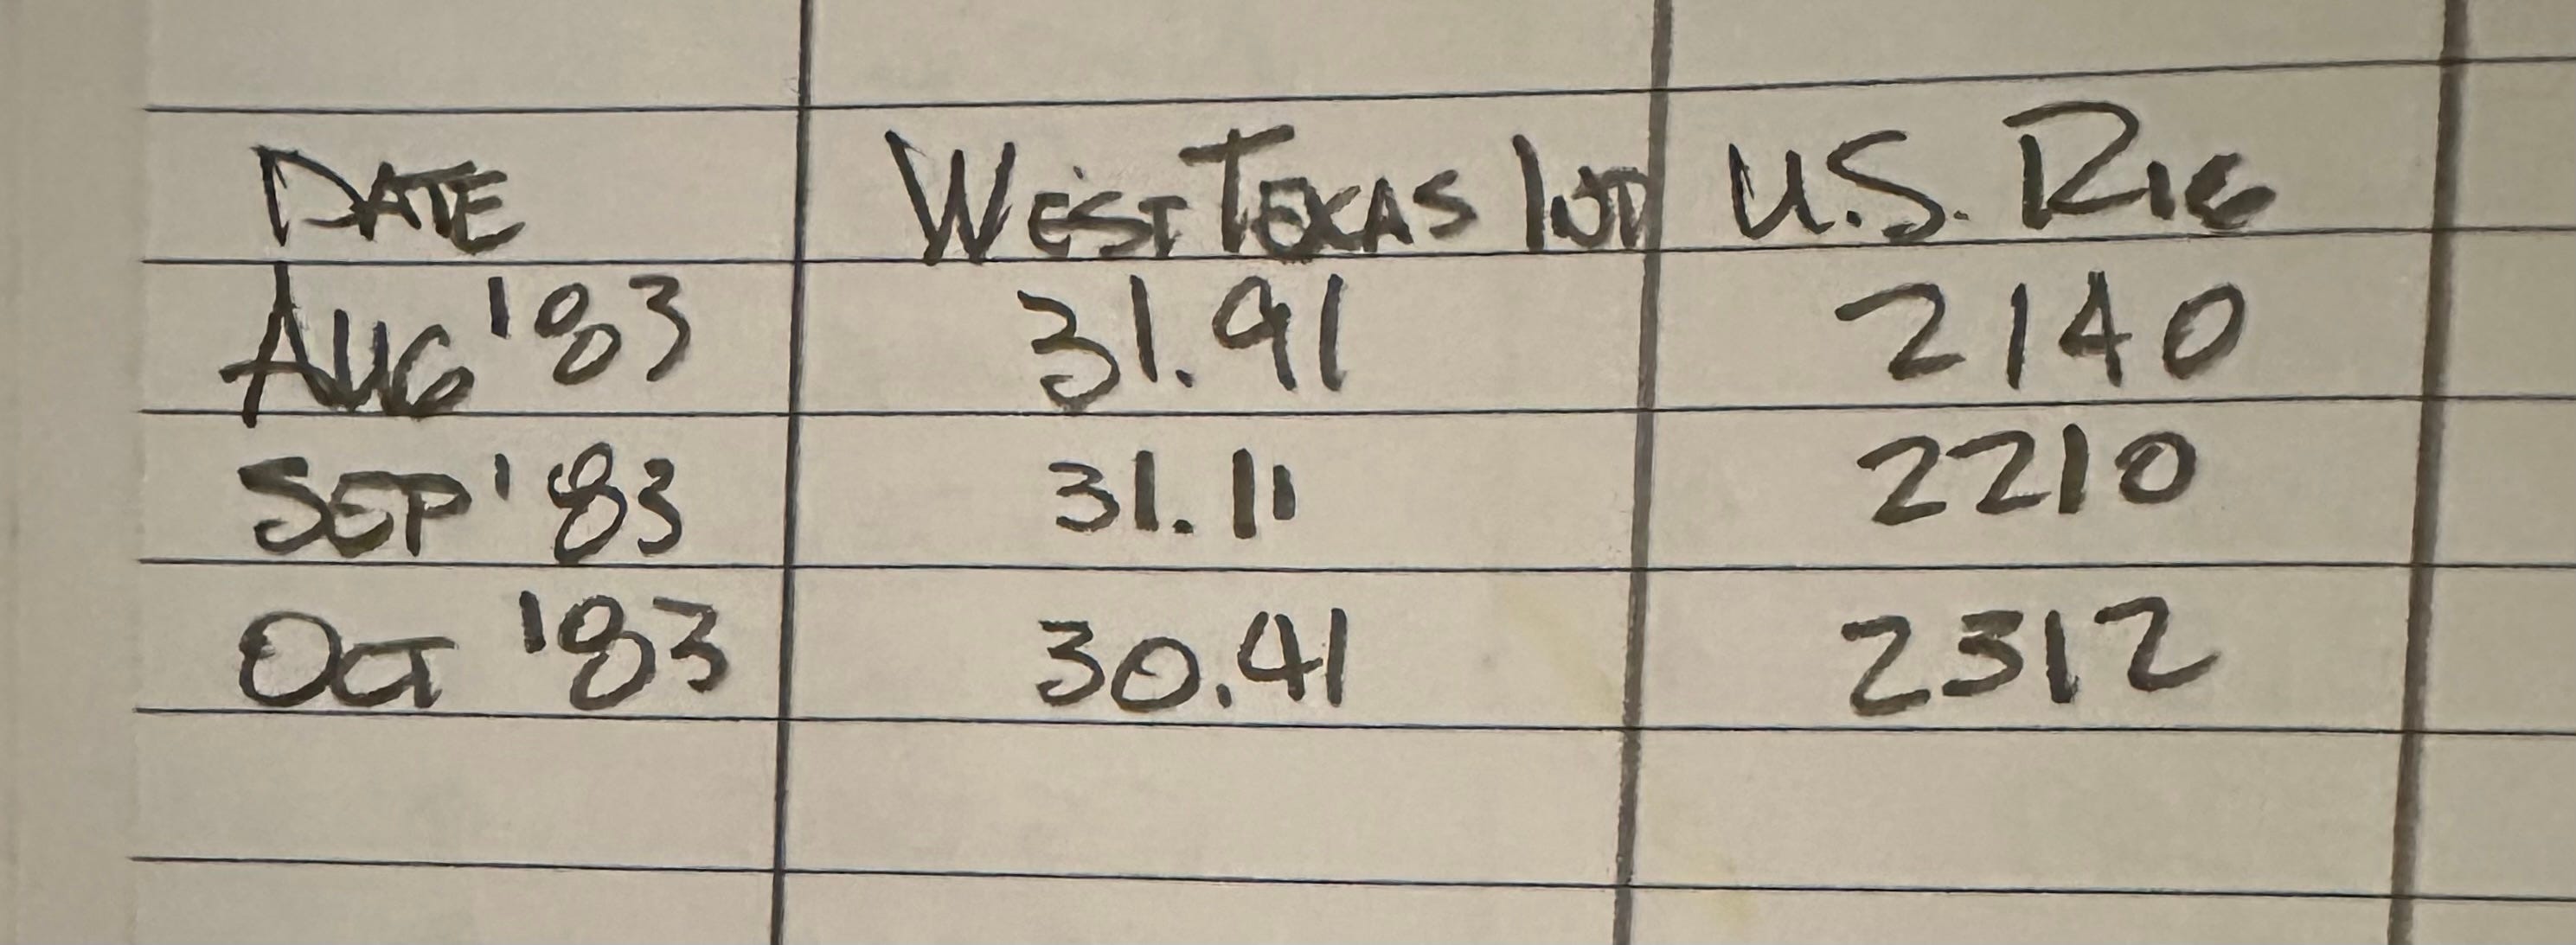 DATE WEST TEXAS INT U.S. RIG
AUG '83 31.91 2140
SEP '83 31.11 2210
OCT '83 30.41 2312